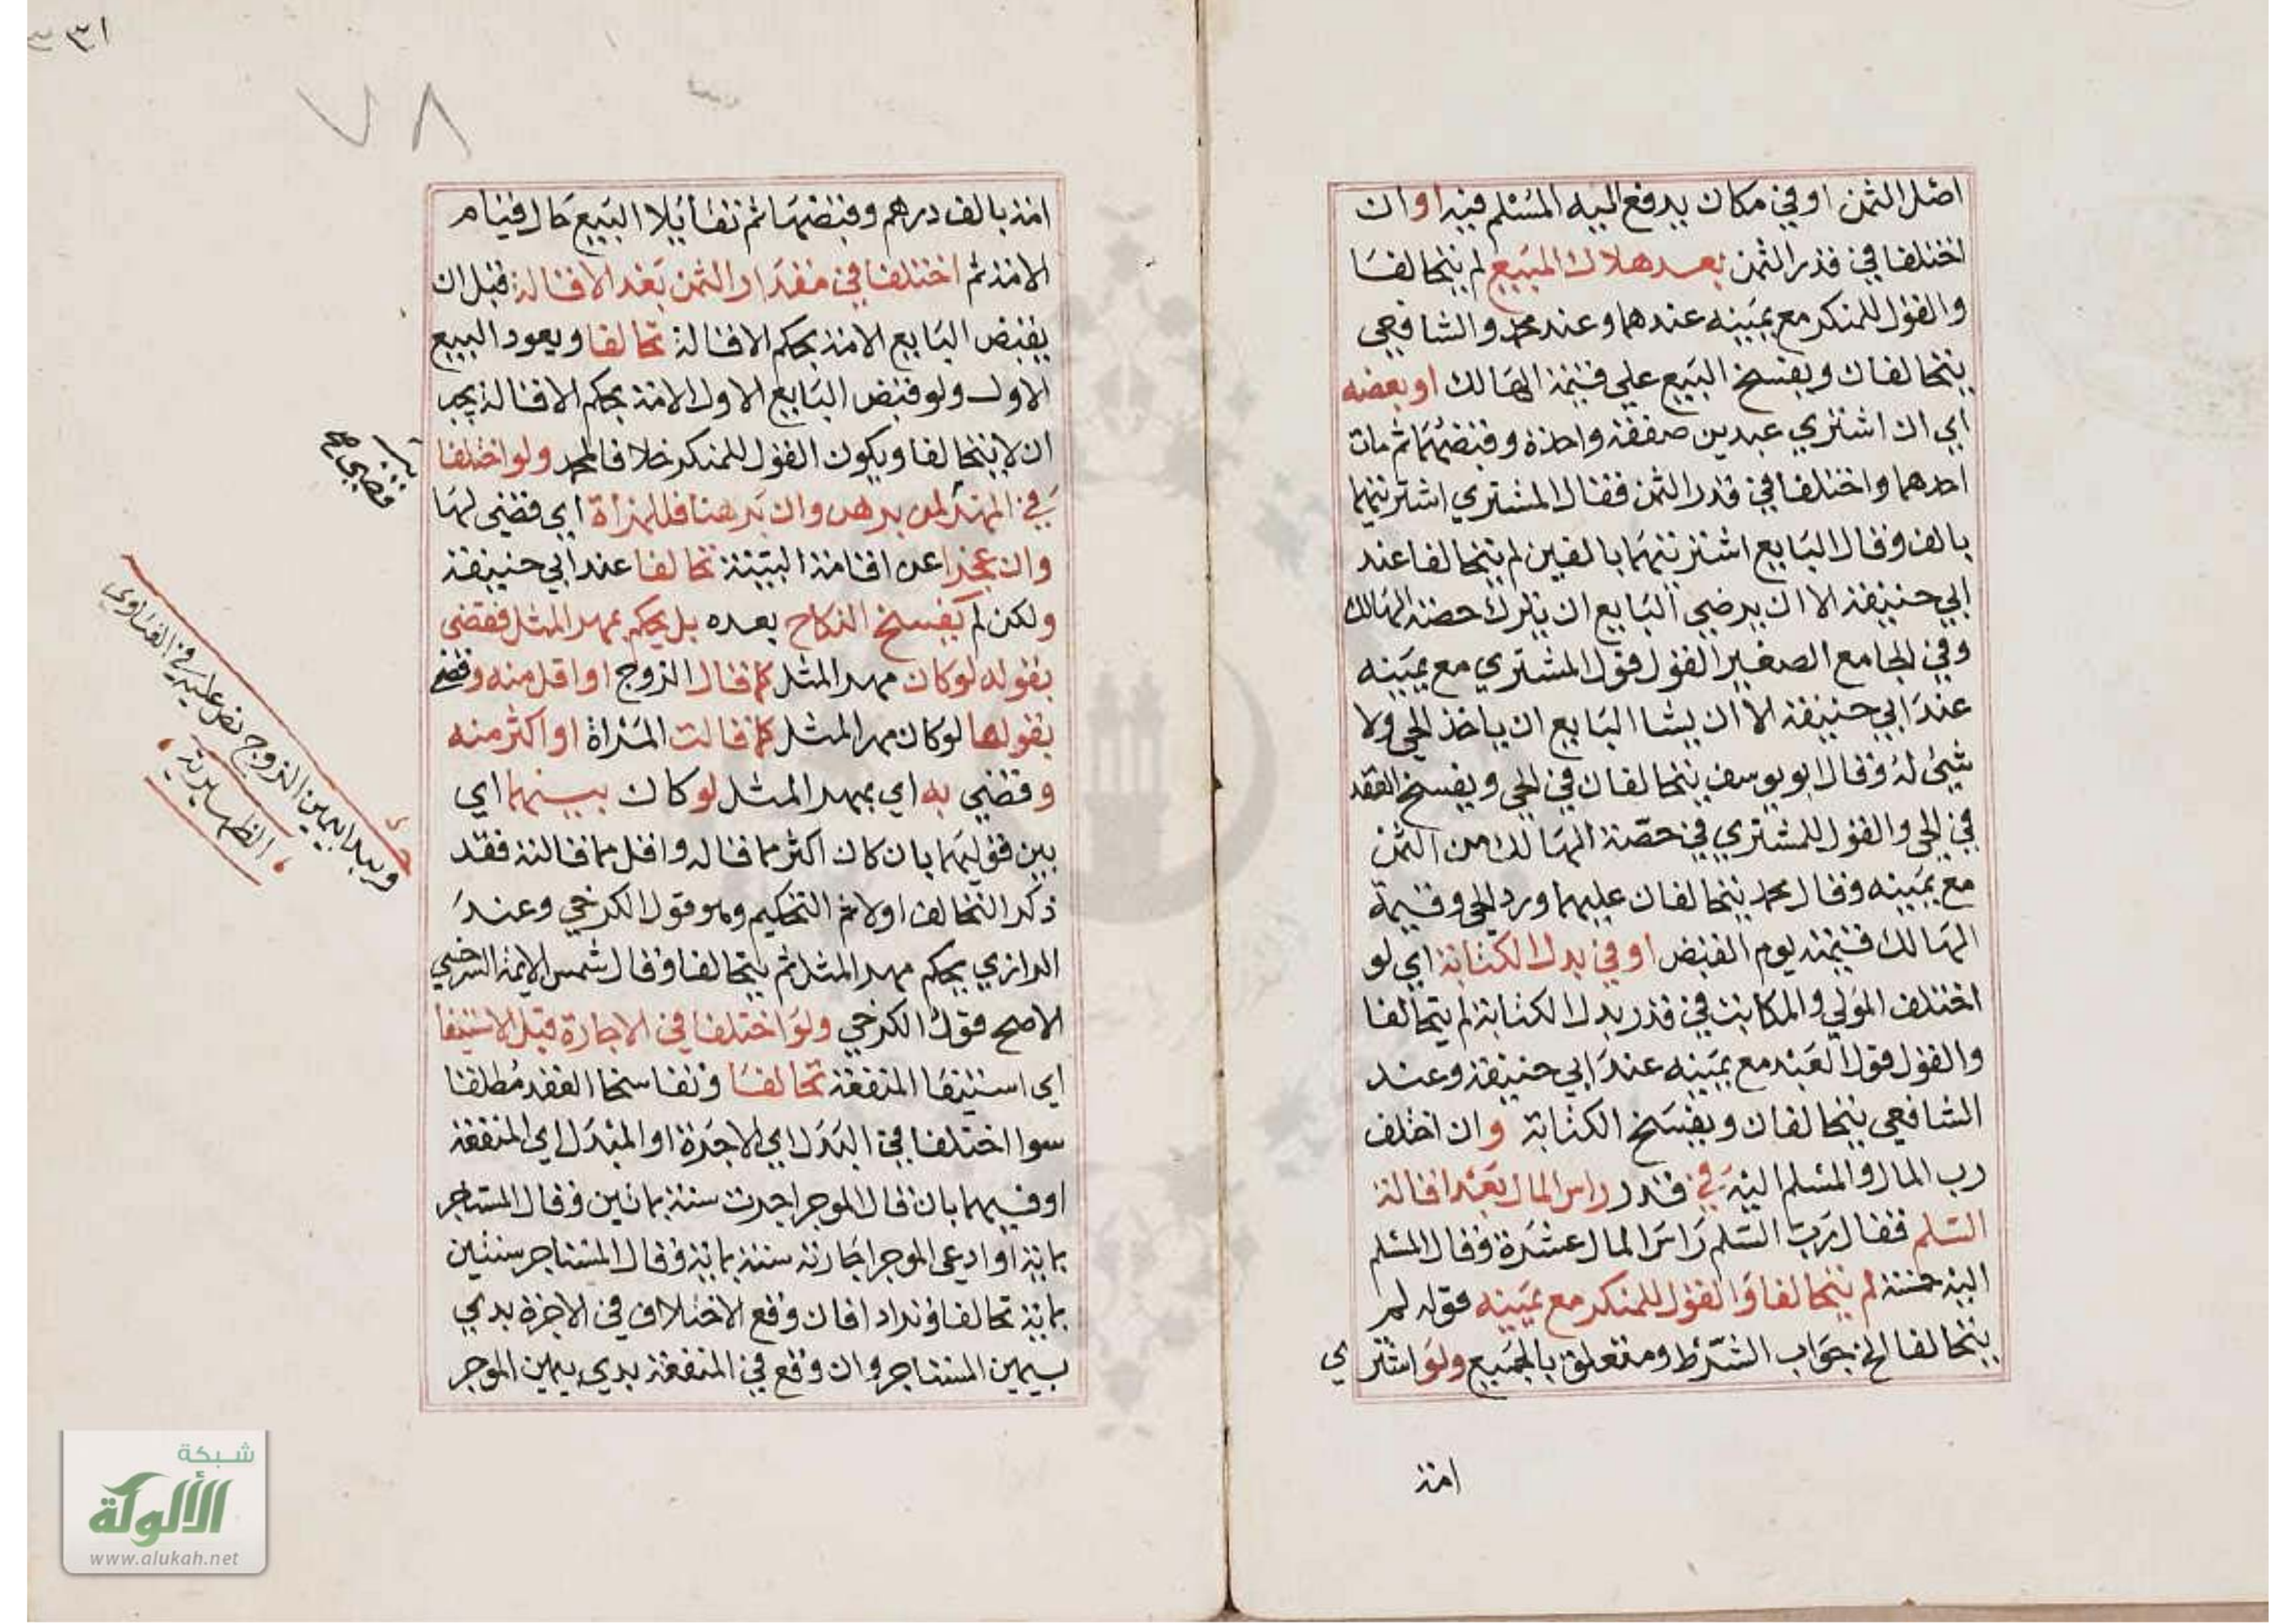 اصل الثمن او في مكان يدفع اليه المسلم فيه او ان
اختلفا في قدر الثمن بعد هلاك المبيع لم يتحالفا
والقول للمنكر مع يمينه عندهما وعند محمد والشافعي
يتحالفان ويفسخ البيع علي قيمة الهالك او بعضه
اي ان اشتري عبدين صفقة واحدة وقبضهما ثم مات
احدهما واختلفا في قدر الثمن فقال المشتري اشتريتهما
بالف وقال البايع اشتريتهما بالفين لم يتحالفا عند
ابي حنيفة الا ان يرضي البايع ان يترك حصة الهالك
وفي الجامع الصغير القول قول المشتري مع يمينه
عند ابي حنيفة الا ان يشا البايع ان ياخذ الحي ولا
شيء له وقال ابو يوسف يتحالفان في الحي ويفسخ العقد
في الحي والقول للمشتري في حصة الهالك من الثمن
مع يمينه وقال محمد يتحالفان عليهما ورد الحي وقيمة
الهالك قيمته يوم القبض او في بدل الكتابة اي لو
اختلف المولي والمكاتب في قدر بدل الكتابة لم يتحالفا
والقول قول العبد مع يمينه عند ابي حنيفة وعند
الشافعي يتحالفان ويفسخ الكتابة وان اختلف
رب المال والمسلم اليه في قدر راس المال بعد اقالة
السلم فقال رب السلم راس المال عشرة وقال المسلم
اليه خمسة لم يتحالفا والقول للمنكر مع يمينه قوله لم
يتحالفا الخ جواب الشرط ومتعلق بالجميع ولو اشتري
امة
٧٨
امة بالف درهم وقبضها ثم تقايلا البيع حال قيام
الامة ثم اختلفا في مقدار الثمن بعد الاقالة قبل ان
يقبض البايع الامة بحكم الاقالة تحالفا ويعود البيع
الاول ولو قبض البايع الاول الامة بحكم الاقالة يجب
ان لا يتحالفا ويكون القول للمنكر خلافا لمحمد ولو اختلفا
في المهر لمن برهن وان برهنا فللمرأة اي قضي لها
وان عجزا عن اقامة البينة تحالفا عند ابي حنيفة
ولكن لم يفسخ النكاح بعده بل يحكم بمهر المثل فقضي
بقوله لو كان مهر المثل كما قال الزوج او اقل منه وقضي
بقولها لو كان مهر المثل كما قالت المراة او اكثر منه
وقضي به اي بمهر المثل لو كان بينهما اي
بين قوليهما بان كان اكثر مما قاله واقل مما قالته فقد
ذكر التحالف اولا ثم التحكيم وهو قول الكرخي وعند
الرازي يحكم مهر المثل ثم يتحالفا وقال شمس الايمة السرخسي
الاصح قول الكرخي ولو اختلفا في الاجارة قبل الاستيفا
اي استيفا المنفعة تحالفا وتفاسخا العقد مطلقا
سوا اختلفا في البدل اي الاجرة او المبدل اي المنفعة
او فيهما بان قال الموجر اجرت سنة بماتين وقال المستاجر
بماية او ادعي الموجر اجارته سنة بماية وقال المستاجر سنتين
بماية تحالفا وترادا فان وقع الاختلاف في الاجرة بدي
بيمين المستاجر وان وقع في المنفعة بدي بيمين الموجر
قضي
ويبدا بيمين الزوج نص عليه في الفتاوي
الظهيرية
شبكة
الألوكة
www.alukah.net